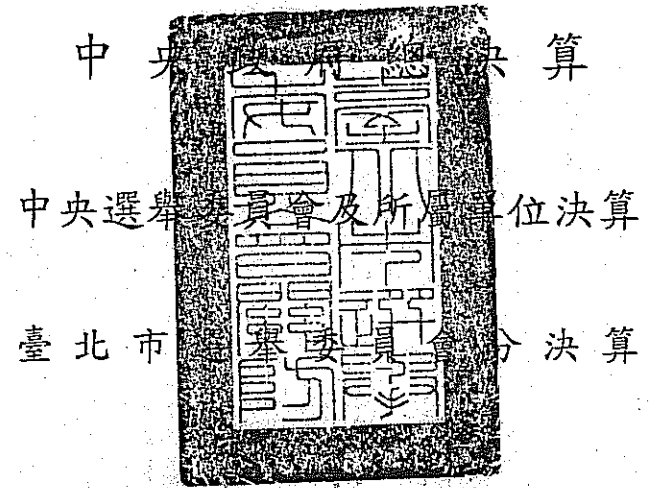 中央政府總決算
中央選舉委員會及所屬單位決算
臺北市選舉委員會分決算